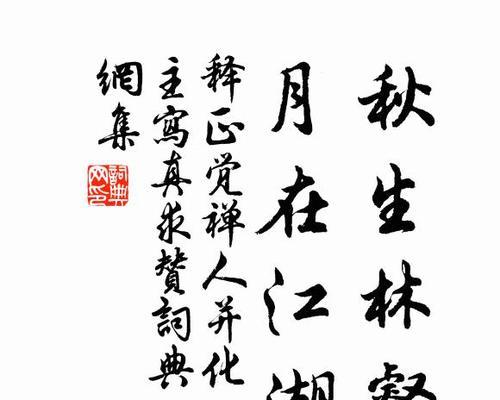 秋生林壑
月在江湖
释正觉禅人并化
主寫真求贊詞典
網集
詞典
网印